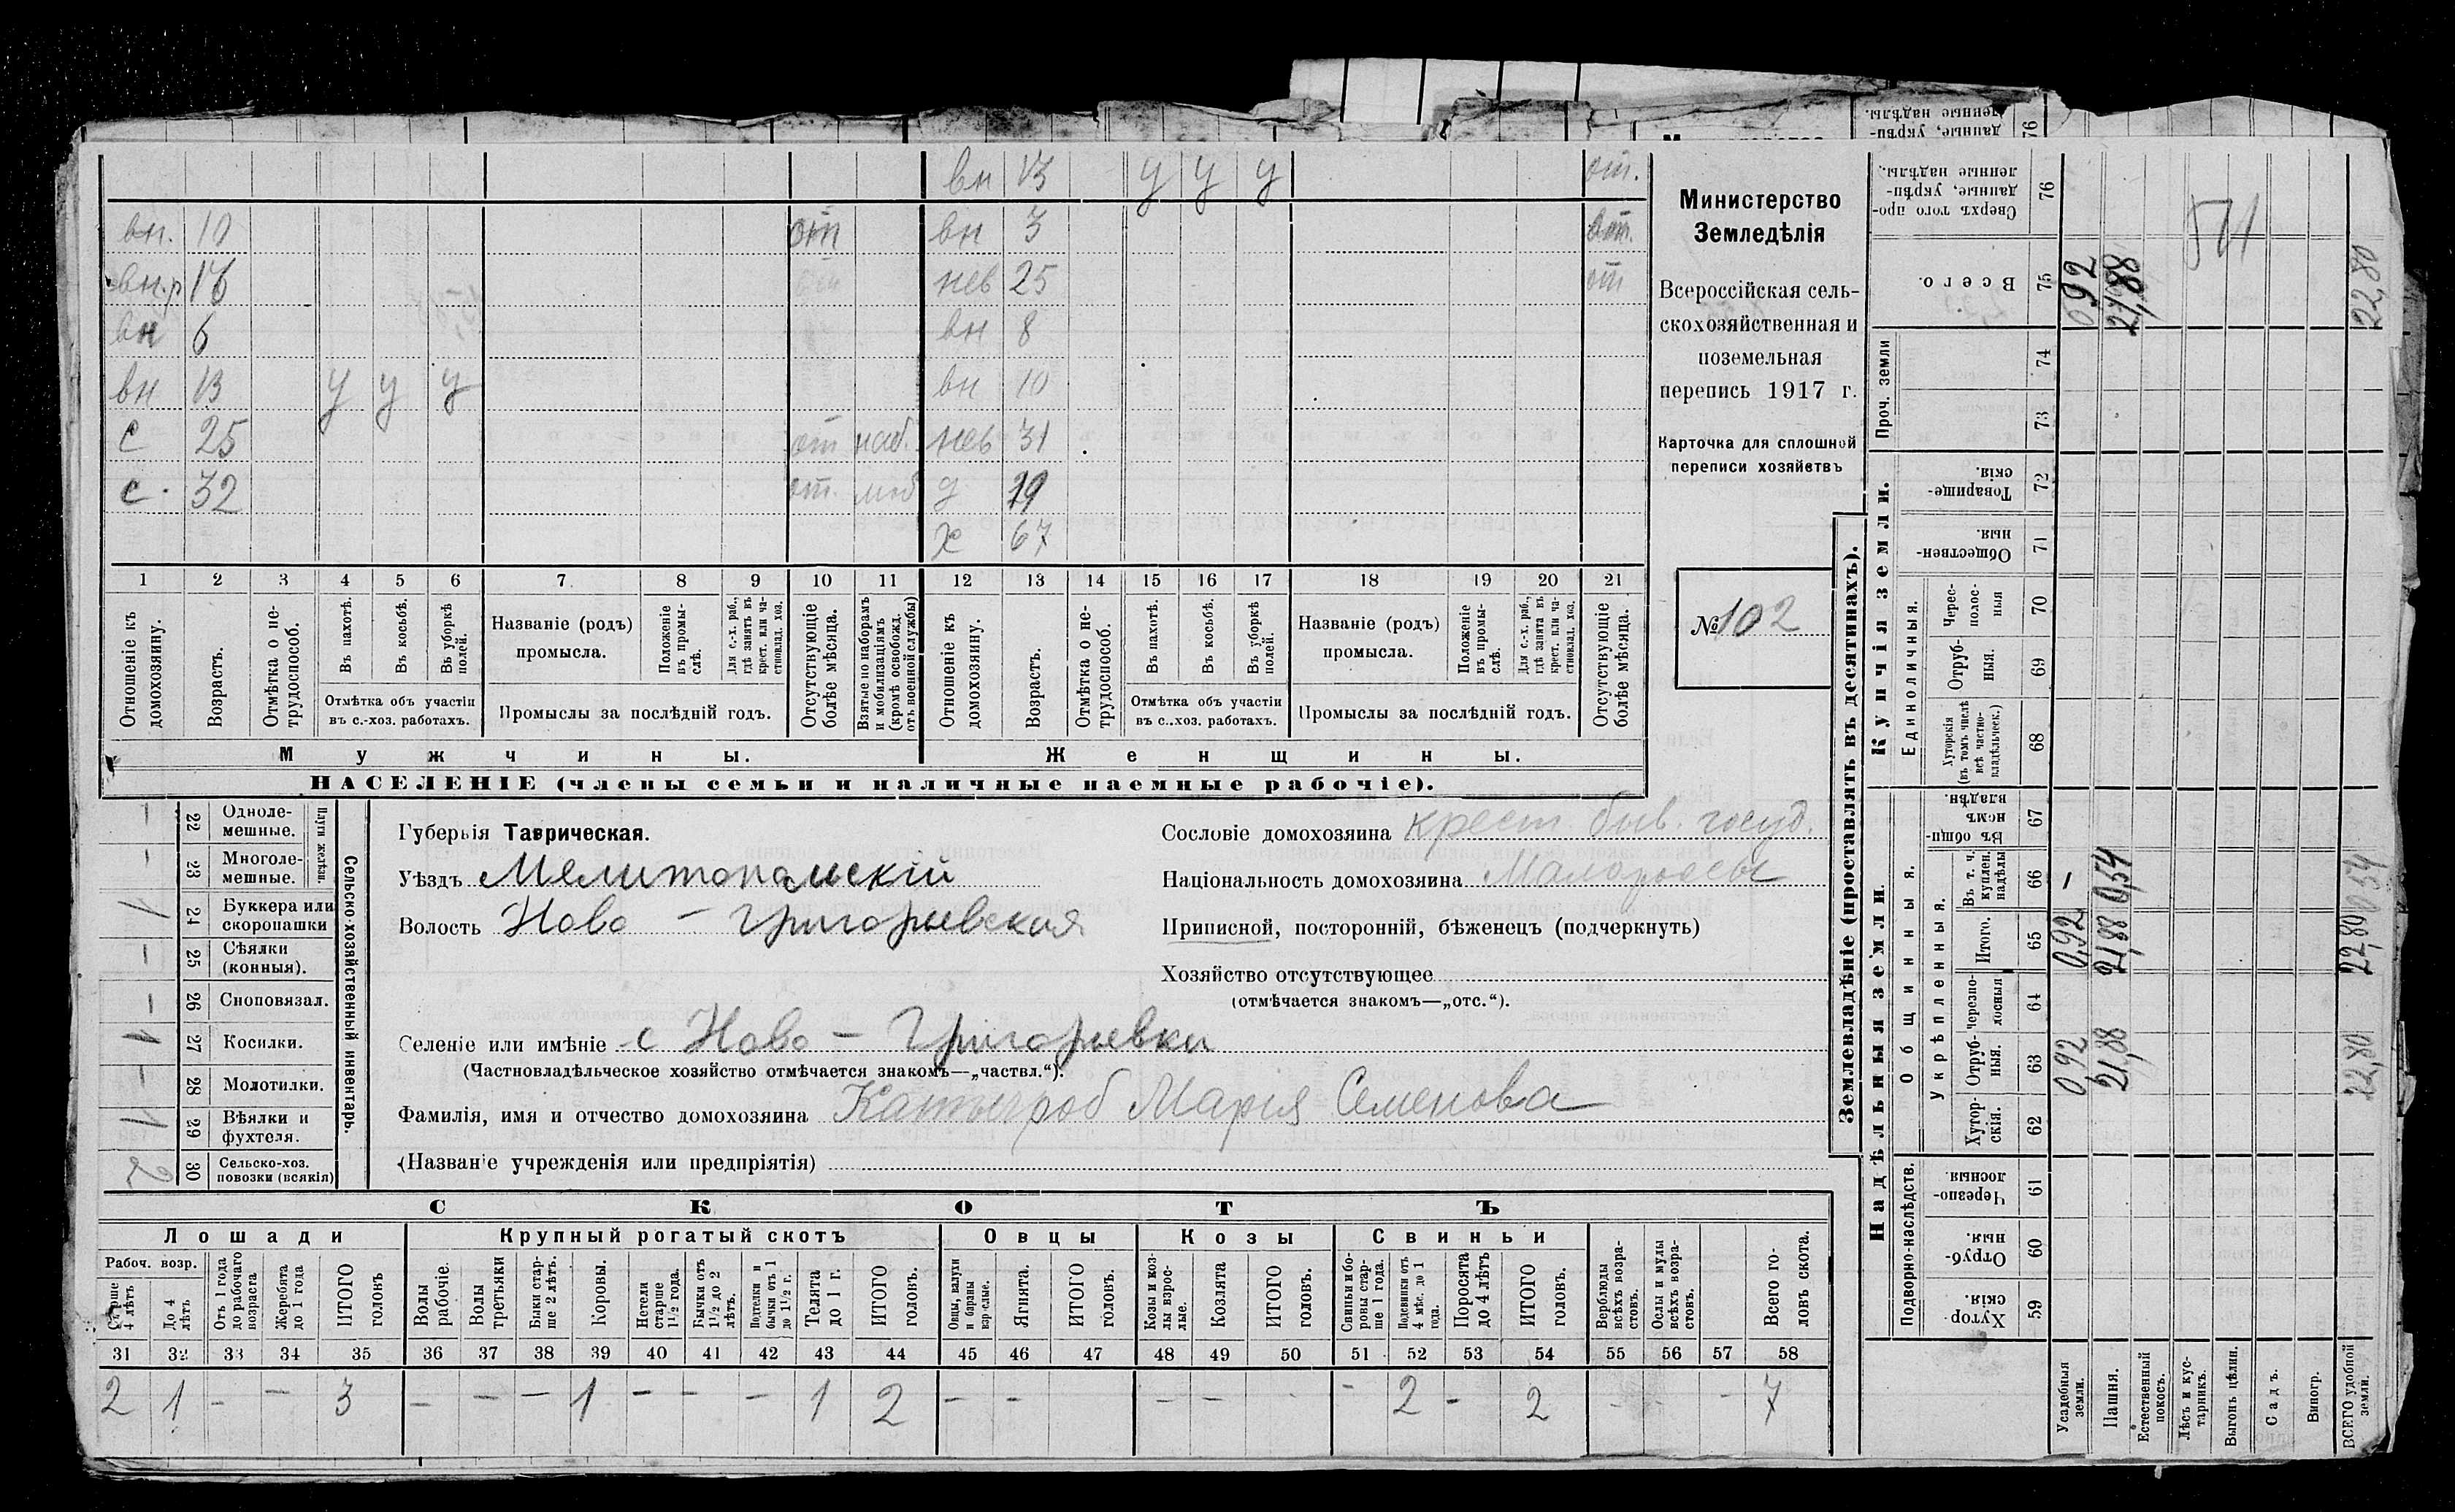 вн 13 у у у от.
вн. 10 отп вн 3 от.
вн.р 16 нев 25 от
вн 6 вн 8
вн 13 у у у вн 10
с 25 от моб. нев 31
с. 32 от. моб д 29
х 67
1 2 3 4 5 6 7 8 9 10 11 12 13 14 15 16 17 18 19 20 21
Отношеніе къ домохозяину.
Возрастъ.
Отмѣтка о не-
трудоспособ.
Въ пахотѣ.
Въ косьбѣ.
Въ уборкѣ полей.
Отмѣтка объ участіи
въ с.-хоз. работахъ.
Названіе (родъ)
промысла.
Положеніе въ промы-
слѣ.
Для с.-х. раб.,
гдѣ занятъ въ
крест. или ча-
стновлад. хоз.
Промыслы за послѣдній годъ.
Отсутствующіе
болѣе мѣсяца.
Взятые по наборамъ
и мобилизаціямъ
(кромѣ освобожд.
отъ военной службы)
Отношеніе къ
домохозяину.
Возрастъ.
Отмѣтка о не-
трудоспособ.
Въ пахотѣ.
Въ косьбѣ.
Въ уборкѣ полей.
Отмѣтка объ участіи
въ с..хоз. работахъ.
Названіе (родъ)
промысла.
Положеніе въ промы-
слѣ.
Для с.-х. раб.,
гдѣ занята въ
крест. или ча-
стновлад. хоз.
Промыслы за послѣдній годъ.
Отсутствующіе
болѣе мѣсяца.
Мужчины. Женщины.
НАСЕЛЕНІЕ (члены семьи и наличные наемные рабочіе).
Министерство
Земледѣлія
Всероссійская сель-
скохозяйственная и
поземельная
перепись 1917 г.
Карточка для сплошной
переписи хозяйствъ
№ 102
Сельско-хозяйственный инвентарь.
Плуги желѣзн.
— 22 Одноле-
мешные.
— 23 Многоле-
мешные.
1 24 Буккера или
скоропашки
— 25 Сѣялки
(конныя).
— 26 Сноповязал.
1 27 Косилки.
— 28 Молотилки.
1 29 Вѣялки и
фухтеля.
2 30 Сельско-хоз.
повозки (всякія)
Губернія Таврическая.
Уѣздъ Мелитопольскій
Волость Ново — Григорьевская
Сословіе домохозяина крест. быв. госуд.
Національность домохозяина Малороссы
Приписной, посторонній, бѣженецъ (подчеркнуть)
Хозяйство отсутствующее
(отмѣчается знакомъ—„отс.“).
Селеніе или имѣніе с Ново — Григорьевки
(Частновладѣльческое хозяйство отмѣчается знакомъ—„частвл.“).
Фамилія, имя и отчество домохозяина Мария Семенова
(Названіе учрежденія или предпріятія)
СКОТЪ
Лошади Крупный рогатый скотъ Овцы Козы Свиньи
Рабоч. возр.
Старше
4 лѣтъ
До 4
лѣтъ
Отъ 1 года
до рабочаго
возраста
Жеребята
до 1 года
ИТОГО
головъ
Волы
рабочіе.
Волы
третьяки
Быки стар-
ше 2 лѣтъ.
Коровы.
Нетели
старше
1½ года.
Бычки отъ
1½ до 2
лѣтъ.
Подтелки и
бычки отъ 1
до 1½ г.
Телята
до 1 г.
ИТОГО
головъ.
Овцы, валухи
и бараны
взрослые.
Ягнята.
ИТОГО
головъ.
Козы и коз-
лы взрос-
лые.
Козлята
ИТОГО
головъ.
Свиньи и бо-
ровы стар-
ше 1 года.
Подсвинки отъ
4 мѣс. до 1
года.
Поросята
до 4 лѣтъ
ИТОГО
головъ.
Верблюды
всѣхъ возра-
стовъ.
Ослы и мулы
всѣхъ возра-
стовъ.
Всего го-
ловъ скота.
31 32 33 34 35 36 37 38 39 40 41 42 43 44 45 46 47 48 49 50 51 52 53 54 55 56 57 58
2 1 - - 3 - - - 1 - - - 1 2 - - - - - 2 - 2 - - - 7
Землевладѣніе (проставлять въ десятинахъ).
Купчія земли.
Надѣльныя земли.
Сверхъ того про-
данные, укрѣп-
ленные надѣлы.
76
Всего.
75
0,92
21,88
22,80
511
Проч. земли
74
73
Товарище-
скія.
72
Обществен-
ныя.
71
Единоличныя.
Черес-
полос-
ныя
70
Отруб-
ныя.
69
Хуторскія
(въ томъ числѣ
всѣ частно-
владѣльческ.)
68
Общинныя.
Въ общи-
номъ
владѣн.
67
Укрѣпленныя.
Въ т. ч.
куплен.
надѣлы
66
—
0,54
0,54
Итого.
65
0,92
21,88
22,80
Черезпо-
лосныя
64
Отруб-
ныя.
63
0,92
21,88
22,80
Хутор-
скія.
62
Подворно-наслѣдств.
Черезпо-
лосныя
61
Отруб-
ныя.
60
Хутор-
скія.
59
Усадебныя
земли.
Пашня.
Естественный
покосъ.
Лѣсъ и кус-
тарникъ.
Выгонъ цѣлин.
Садъ.
Виногр.
ВСЕГО удобной
земли.